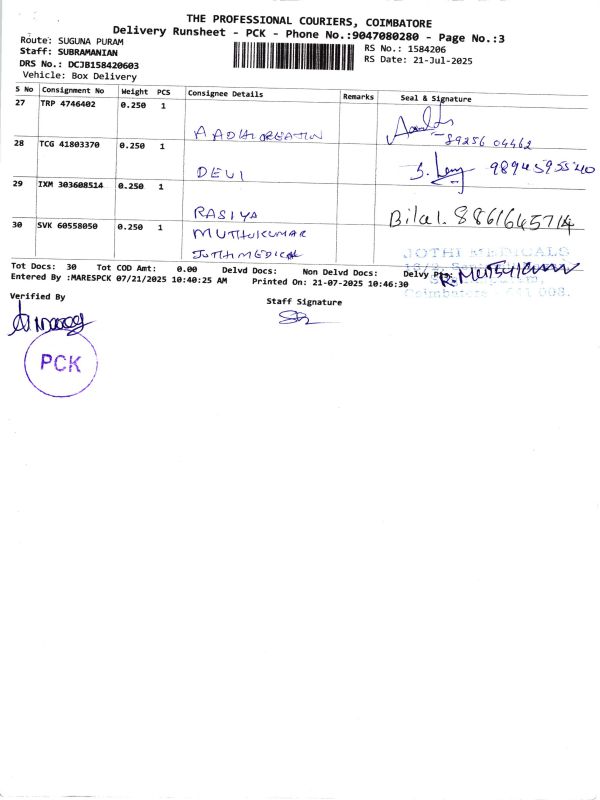 THE PROFESSIONAL COURIERS, COIMBATORE
Delivery Runsheet - PCK - Phone No.:9047080280 - Page No.:3
Route: SUGUNA PURAM
RS No.: 1584206
Staff: SUBRAMANIAN
RS Date: 21-Jul-2025
DRS No.: DCJB158420603
Vehicle: Box Delivery
S No Consignment No Weight PCS Consignee Details Remarks Seal & Signature
27 TRP 4746402 0.250 1
AADHI CREATION
89256 04462
28 TCG 41803370 0.250 1
DEVI
98945 95540
29 IXM 303608514 0.250 1
RASIYA
Bilal. 8861645714
30 SVK 60558050 0.250 1
MUTHUKUMAR
JOTHI MEDICAL
JOTHI MEDICALS
Tot Docs: 30 Tot COD Amt: 0.00 Delvd Docs: Non Delvd Docs: Delvy
Entered By :MARESPCK 07/21/2025 10:40:25 AM Printed On: 21-07-2025 10:46:30
Coimbatore - 641 008.
Verified By
Staff Signature
PCK